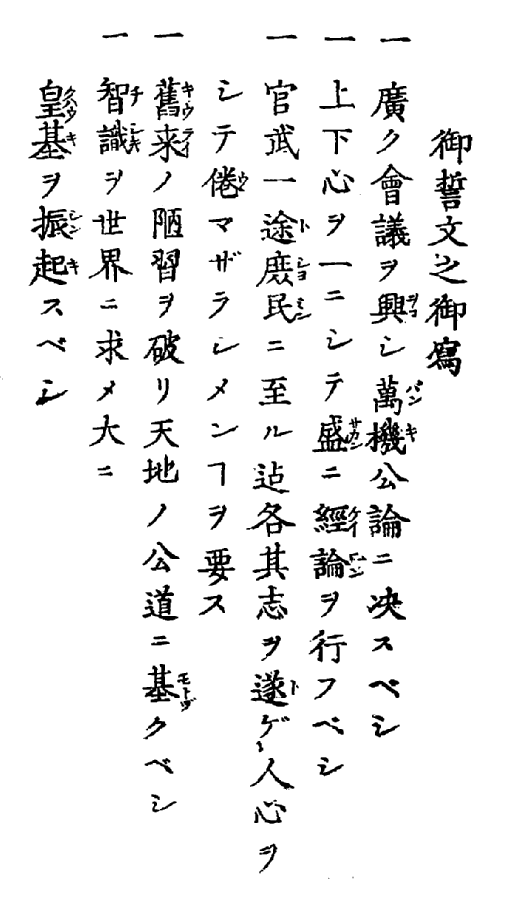 御誓文之御寫
一 廣ク會議ヲ興シ萬機公論ニ决スベシ
一 上下心ヲ一ニシテ盛ニ經論ヲ行フベシ
一 官武一途庶民ニ至ル迠各其志ヲ遂ゲ人心ヲ
シテ倦マザラシメンヿヲ要ス
一 舊来ノ陋習ヲ破リ天地ノ公道ニ基クベシ
一 智識ヲ世界ニ求メ大ニ
皇基ヲ振起スベシ